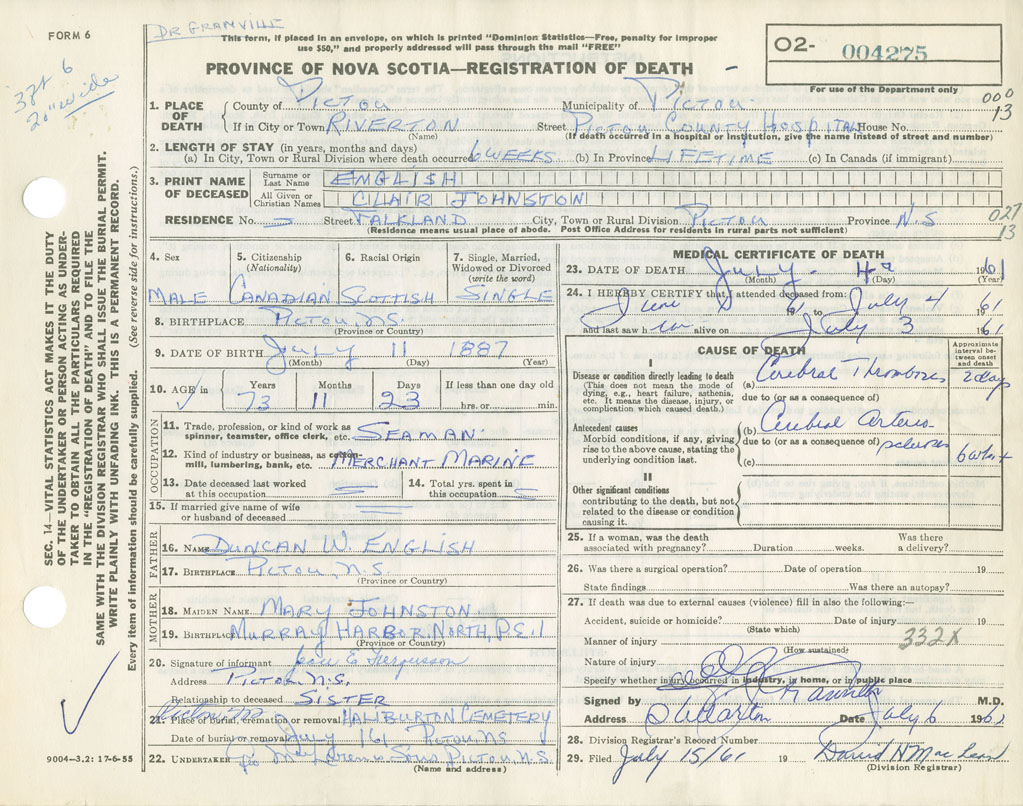 DR GRANVILLE
FORM 6
This form, if placed in an envelope, on which is printed "Dominion Statistics—Free, penalty for improper
use $50," and properly addressed will pass through the mail "FREE"
O2- 004275
PROVINCE OF NOVA SCOTIA—REGISTRATION OF DEATH
For use of the Department only
20" wide
000
13
1. PLACE OF DEATH County of PICTOU Municipality of PICTOU
If in City or Town RIVERTON Street PICTOU COUNTY HOSPITAL House No.
(Name) (If death occurred in a hospital or institution, give the name instead of street and number)
2. LENGTH OF STAY (in years, months and days)
(a) In City, Town or Rural Division where death occurred 6 WEEKS (b) In Province LIFETIME (c) In Canada (if immigrant)
3. PRINT NAME OF DECEASED
Surname or Last Name ENGLISH
All Given or Christian Names CLAIR JOHNSTON
RESIDENCE No. Street FALKLAND City, Town or Rural Division PICTOU Province N.S
(Residence means usual place of abode. Post Office Address for residents in rural parts not sufficient)
027
13
4. Sex
MALE
5. Citizenship (Nationality)
CANADIAN
6. Racial Origin
SCOTTISH
7. Single, Married, Widowed or Divorced (write the word)
SINGLE
8. BIRTHPLACE PICTOU, N.S.
(Province or Country)
9. DATE OF BIRTH JULY 11 1887
(Month) (Day) (Year)
10. AGE in Years Months Days If less than one day old
73 11 23 hrs. or min.
OCCUPATION
11. Trade, profession, or kind of work as spinner, teamster, office clerk, etc. SEAMAN
12. Kind of industry or business, as cotton-mill, lumbering, bank, etc. MERCHANT MARINE
13. Date deceased last worked at this occupation
14. Total yrs. spent in this occupation
15. If married give name of wife or husband of deceased
FATHER
16. NAME DUNCAN W. ENGLISH
17. BIRTHPLACE PICTOU, N.S.
(Province or Country)
MOTHER
18. MAIDEN NAME MARY JOHNSTON
19. BIRTHPLACE MURRAY HARBOR NORTH, P.E.I
(Province or Country)
20. Signature of informant E. Fergusson
Address PICTOU, N.S.
Relationship to deceased SISTER
21. Place of burial, cremation or removal HALIBURTON CEMETERY
Date of burial or removal PICTOU NS
22. UNDERTAKER Sons PICTOU, N.S.
(Name and address)
MEDICAL CERTIFICATE OF DEATH
23. DATE OF DEATH July 4 1961
(Month) (Day) (Year)
24. I HEREBY CERTIFY that I attended deceased from:
June 6 1961 to July 4 1961
and last saw h im alive on July 3 1961
CAUSE OF DEATH
Approximate interval between onset and death
I
Disease or condition directly leading to death
(This does not mean the mode of dying, e.g., heart failure, asthenia, etc. It means the disease, injury, or complication which caused death.)
(a) Cerebral Thrombosis 2 days
due to (or as a consequence of)
Antecedent causes
Morbid conditions, if any, giving rise to the above cause, stating the underlying condition last.
(b) Cerebral Arterio-
due to (or as a consequence of) sclerosis
(c)
II
Other significant conditions
contributing to the death, but not related to the disease or condition causing it.
25. If a woman, was the death associated with pregnancy? Duration weeks. Was there a delivery?
26. Was there a surgical operation? Date of operation 19
State findings Was there an autopsy?
27. If death was due to external causes (violence) fill in also the following:—
Accident, suicide or homicide? Date of injury 19
(State which)
Manner of injury 332X
(How sustained)
Nature of injury
Specify whether injury occurred in industry, in home, or in public place
Signed by M.D.
Address Date July 6 1961
28. Division Registrar's Record Number
29. Filed July 15/61 19 David N MacLean
(Division Registrar)
SEC. 14—VITAL STATISTICS ACT MAKES IT THE DUTY
OF THE UNDERTAKER OR PERSON ACTING AS UNDER-
TAKER TO OBTAIN ALL THE PARTICULARS REQUIRED
IN THE "REGISTRATION OF DEATH" AND TO FILE THE
SAME WITH THE DIVISION REGISTRAR WHO SHALL ISSUE THE BURIAL PERMIT.
WRITE PLAINLY WITH UNFADING INK. THIS IS A PERMANENT RECORD.
Every item of information should be carefully supplied. (See reverse side for instructions.)
9004—3.2: 17-6-55